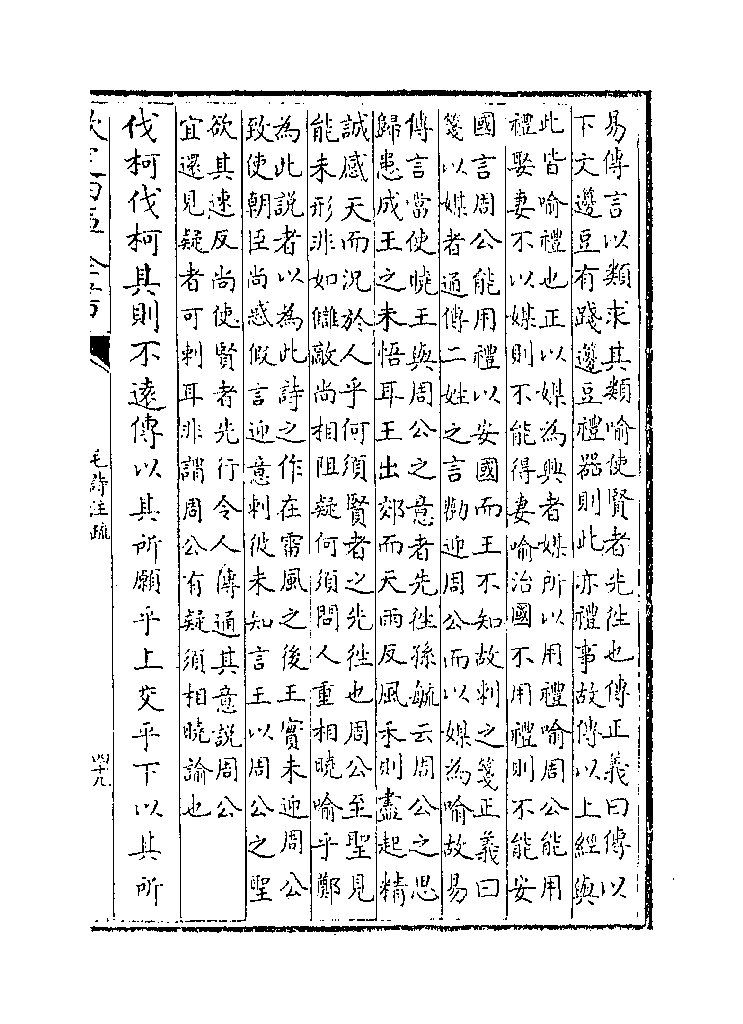 易傳言以類求其類喻使賢者先徃也傳正義曰傳以
下文籩豆有踐籩豆禮器則此亦禮事故傳以上經與
此皆喻禮也正以媒為興者媒所以用禮喻周公能用
禮娶妻不以媒則不能得妻喻治國不用禮則不能安
國言周公能用禮以安國而王不知故刺之箋正義曰
箋以媒者通傳二姓之言勸迎周公而以媒為喻故易
傳言當使曉王與周公之意者先徃孫毓云周公之思
歸患成王之未悟耳王出郊而天雨反風禾則盡起精
誠感天而況於人乎何須賢者之先徃也周公至聖見
能未形非如讎敵尚相阻疑何須問人重相曉喻乎鄭
為此說者以為此詩之作在雷風之後王實未迎周公
致使朝臣尚惑假言迎意刺彼未知言王以周公之聖
欲其速反尚使賢者先行令人傳通其意說周公
宜還見疑者可刺耳非謂周公有疑須相曉諭也
伐柯伐柯其則不遠傳以其所願乎上交乎下以其所
欽定四庫全書
毛詩注疏
四十九